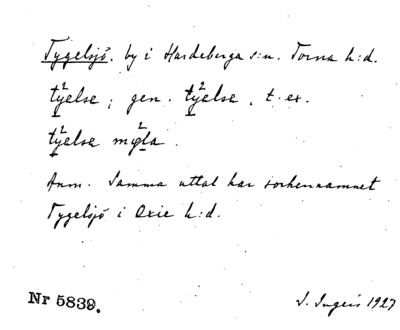 Tygelsjö. by i Hardeberga s:n. Torna h:d.
tỳ²else; gen. tỳ²else, t. ex.
tỳ²else mø²la.
Anm. Samma uttal har sockennamnet
Tygelsjö i Oxie h:d.
Nr 5839.
S. Ingers 1927